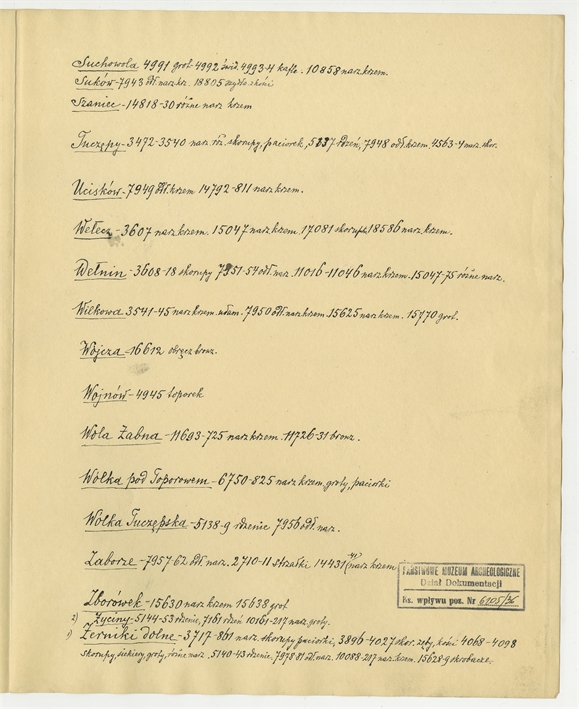 Suchowola 4991 grot. 4992 świd. 4993-4 kafle. 10858 narz. krzem.
Suków - 7943 odł. narz. krz. 18805 szydło kości
Szaniec - 14818-30 różne narz krzem
Tuczępy - 3472-3540 narz róż. skorupy, paciorek, 5137 rdzeń, 7948 odł. krzem. 4563-4 narz. skor.
Ucisków - 7949 odł. krzem 14792-811 narz krzem.
Wełecz - 3607 narz krzem. 15047 narz krzem. 17081 skorupa 18586 narz krzem.
Wełnin - 3608-18 skorupy 7951-54 odł. narz. 11016-11046 narz krzem. 15047-75 różne narz.
Wilkowa 3541-45 narz krzem. 7950 odł. narz krzem 15625 narz krzem. 15770 grot.
Wójcza - 16612 obręcz bronz.
Wojnów - 4945 toporek
Wola Żabna - 11693-725 narz krzem. 11726-31 bronz.
Wólka pod Toporowem - 6750-825 narz krzem, groty, paciorki
Wólka Tuczępska - 5138-9 rdzenie 7956 odł. narz.
Zaborze - 7957-62 odł. narz. 2710-11 strzałki 14431 (narz krzem
Zborówek - 15630 narz krzem 15638 grot
2) Życiny - 5144-53 rdzenie, 7161 rdzeń 10161-217 narz, groty.
1) Żerniki dolne - 3717-861 narz. skorupy paciorki, 3896-4027 skor. zęby, kości 4068-4098
skorupy, siekiery, groty, różne narz. 5140-43 rdzenie. 7978-81 odł. narz. 10088-217 narz. krzem. 15628-9 skrobacze.
PAŃSTWOWE MUZEUM ARCHEOLOGICZNE
Dział Dokumentacji
Ks. wpływu poz. Nr 6105/36